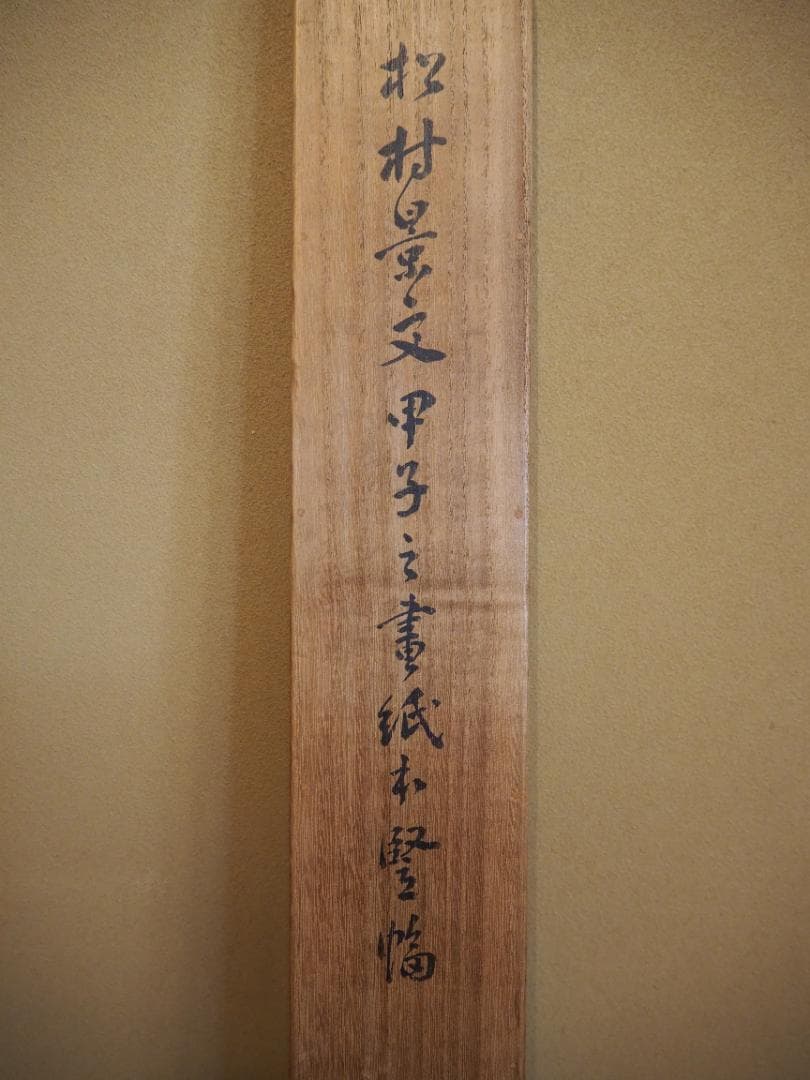 松村景文甲子之畫紙本竪幅